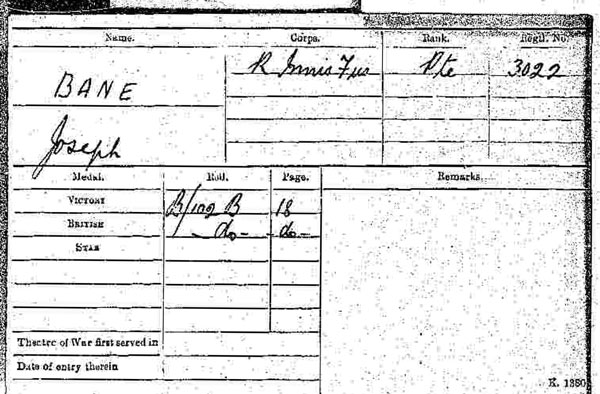 Name. Corps. Rank. Regtl. No.
BANE R Innis Fus Pte 3022
Joseph
Medal. Roll. Page. Remarks.
VICTORY B/102 B 18
BRITISH -do- -do-
STAR
Theatre of War first served in
Date of entry therein
K. 1380